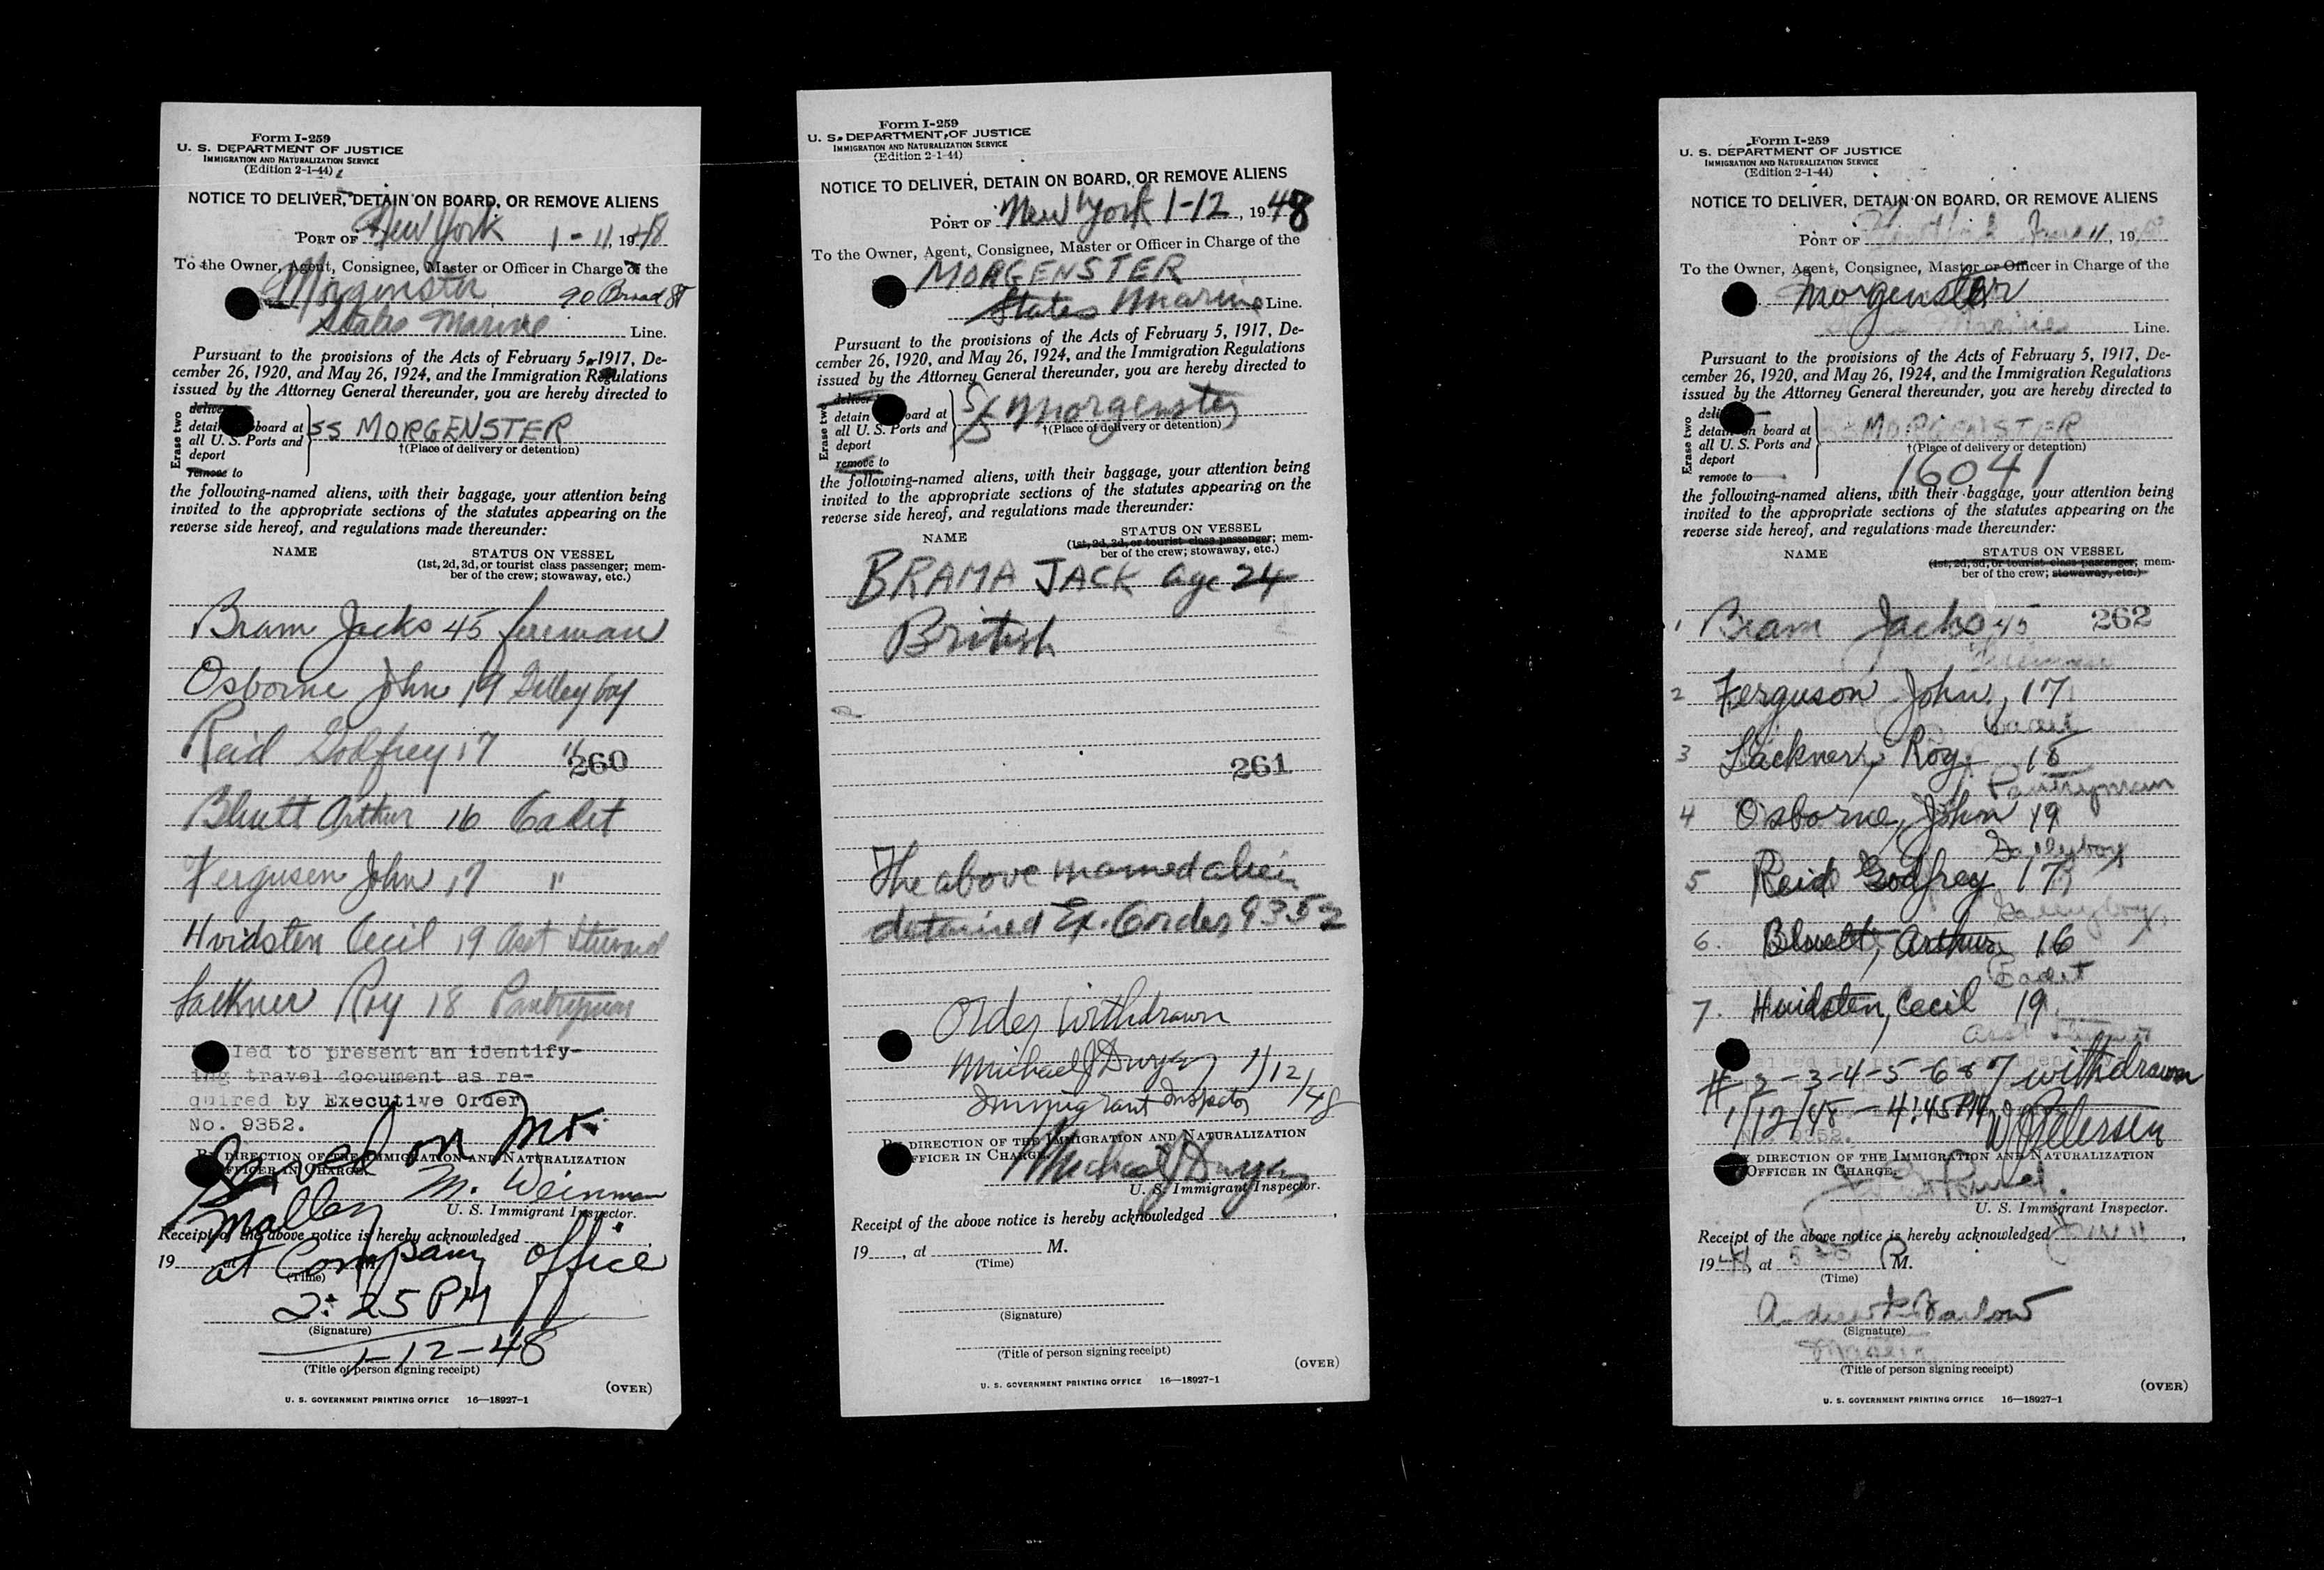 Form I-259
U. S. DEPARTMENT OF JUSTICE
IMMIGRATION AND NATURALIZATION SERVICE
(Edition 2-1-44)
NOTICE TO DELIVER, DETAIN ON BOARD, OR REMOVE ALIENS
PORT OF New York 1-11, 1948
To the Owner, Agent, Consignee, Master or Officer in Charge of the
Morgenster 90 Broad St
States Marine Line.
Pursuant to the provisions of the Acts of February 5, 1917, De-
cember 26, 1920, and May 26, 1924, and the Immigration Regulations
issued by the Attorney General thereunder, you are hereby directed to
Erase two
detain board at
all U. S. Ports and
deport
remove to
SS MORGENSTER
†(Place of delivery or detention)
the following-named aliens, with their baggage, your attention being
invited to the appropriate sections of the statutes appearing on the
reverse side hereof, and regulations made thereunder:
NAME STATUS ON VESSEL
(1st, 2d, 3d, or tourist class passenger; mem-
ber of the crew; stowaway, etc.)
Bram Jacks 45 fireman
Osborne John 19 Galley boy
Reid Godfrey 17 "
260
Bluett Arthur 16 Cadet
Fergusen John 17 "
Hvidsten Cecil 19 Asst Steward
Lackner Roy 18 Pantryman
to present an identify-
ing travel document as re-
quired by Executive Order
No. 9352.
Served on Mr.
BY DIRECTION OF THE IMMIGRATION AND NATURALIZATION
OFFICER IN CHARGE.
M. Weinman
U. S. Immigrant Inspector.
Malley
Receipt of the above notice is hereby acknowledged
19
at Company office
(Time)
2:25 PM
(Signature)
1-12-48
(Title of person signing receipt)
(OVER)
U. S. GOVERNMENT PRINTING OFFICE 16—18927-1
Form I-259
U. S. DEPARTMENT OF JUSTICE
IMMIGRATION AND NATURALIZATION SERVICE
(Edition 2-1-44)
NOTICE TO DELIVER, DETAIN ON BOARD, OR REMOVE ALIENS
PORT OF New York 1-12, 1948
To the Owner, Agent, Consignee, Master or Officer in Charge of the
MORGENSTER
States Marine Line.
Pursuant to the provisions of the Acts of February 5, 1917, De-
cember 26, 1920, and May 26, 1924, and the Immigration Regulations
issued by the Attorney General thereunder, you are hereby directed to
Erase two
deliver
detain board at
all U. S. Ports and
deport
remove to
S/S Morgenster
†(Place of delivery or detention)
the following-named aliens, with their baggage, your attention being
invited to the appropriate sections of the statutes appearing on the
reverse side hereof, and regulations made thereunder:
NAME STATUS ON VESSEL
(1st, 2d, 3d, or tourist class passenger; mem-
ber of the crew; stowaway, etc.)
BRAMA JACK age 24
British
261
The above named alien
detained Ex. Order 9352
Order Withdrawn
Michael J Dwyer 1/12/48
Immigrant Inspector
BY DIRECTION OF THE IMMIGRATION AND NATURALIZATION
OFFICER IN CHARGE.
Michael J Dwyer
U. S. Immigrant Inspector.
Receipt of the above notice is hereby acknowledged
19 , at M.
(Time)
(Signature)
(Title of person signing receipt)
(OVER)
U. S. GOVERNMENT PRINTING OFFICE 16—18927-1
Form I-259
U. S. DEPARTMENT OF JUSTICE
IMMIGRATION AND NATURALIZATION SERVICE
(Edition 2-1-44)
NOTICE TO DELIVER, DETAIN ON BOARD, OR REMOVE ALIENS
PORT OF 11, 19
To the Owner, Agent, Consignee, Master or Officer in Charge of the
Morgenster
Line.
Pursuant to the provisions of the Acts of February 5, 1917, De-
cember 26, 1920, and May 26, 1924, and the Immigration Regulations
issued by the Attorney General thereunder, you are hereby directed to
Erase two
detain on board at
all U. S. Ports and
deport
remove to
SS MORGENSTER
†(Place of delivery or detention)
16041
the following-named aliens, with their baggage, your attention being
invited to the appropriate sections of the statutes appearing on the
reverse side hereof, and regulations made thereunder:
NAME STATUS ON VESSEL
(1st, 2d, 3d, or tourist class passenger; mem-
ber of the crew; stowaway, etc.)
1 Bram Jacks, 45 262
Fireman
2 Ferguson John, 17
Cadet
3 Lackner, Roy, 18
Pantryman
4 Osborne, John 19
Galleyboy
5 Reid Godfrey, 17
Galleyboy
6. Bluett, Arthur 16
Cadet
7. Hvidsten, Cecil 19
Asst Steward
# 2-3-4-5-6 & 7 withdrawn
1/12/48 - 4:45 PM
BY DIRECTION OF THE IMMIGRATION AND NATURALIZATION
OFFICER IN CHARGE.
U. S. Immigrant Inspector.
Receipt of the above notice is hereby acknowledged
1948, at P.M.
(Time)
Barlow
(Signature)
(Title of person signing receipt)
(OVER)
U. S. GOVERNMENT PRINTING OFFICE 16—18927-1